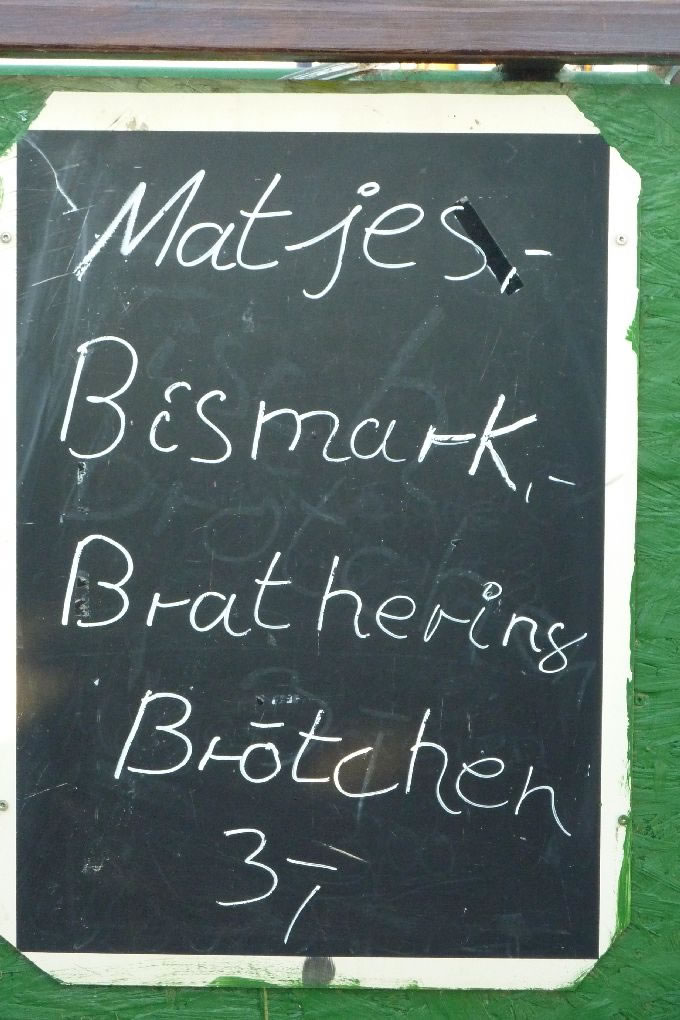 Matjes,-
Bismark,-
Brathering
Brötchen
3,-